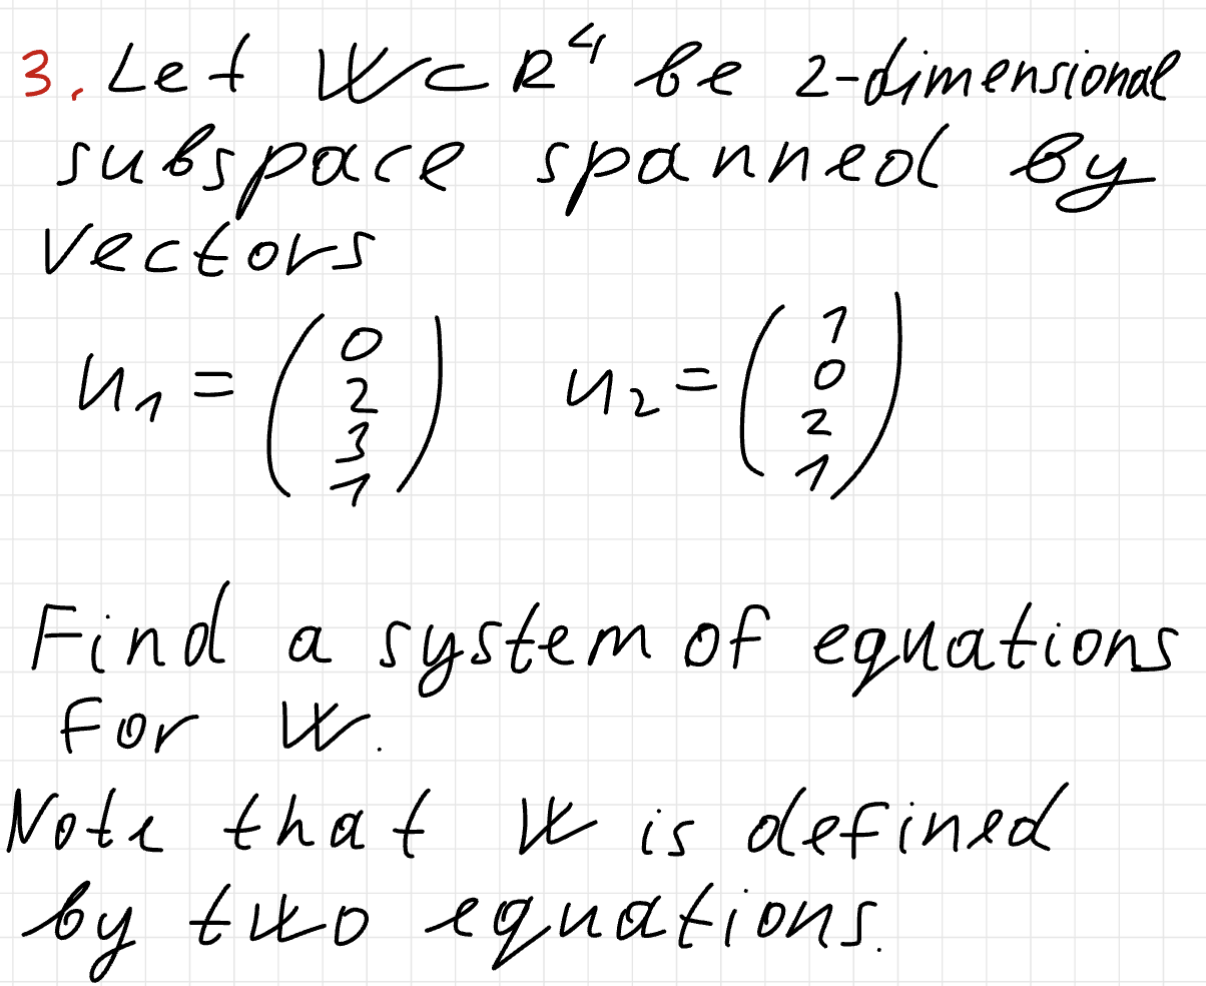 3. Let W⊂R⁴ be 2-dimensional
subspace spanned by
vectors
u₁ = (0 2 3 1) u₂ = (1 0 2 1)
Find a system of equations
for W.
Note that W is defined
by two equations.